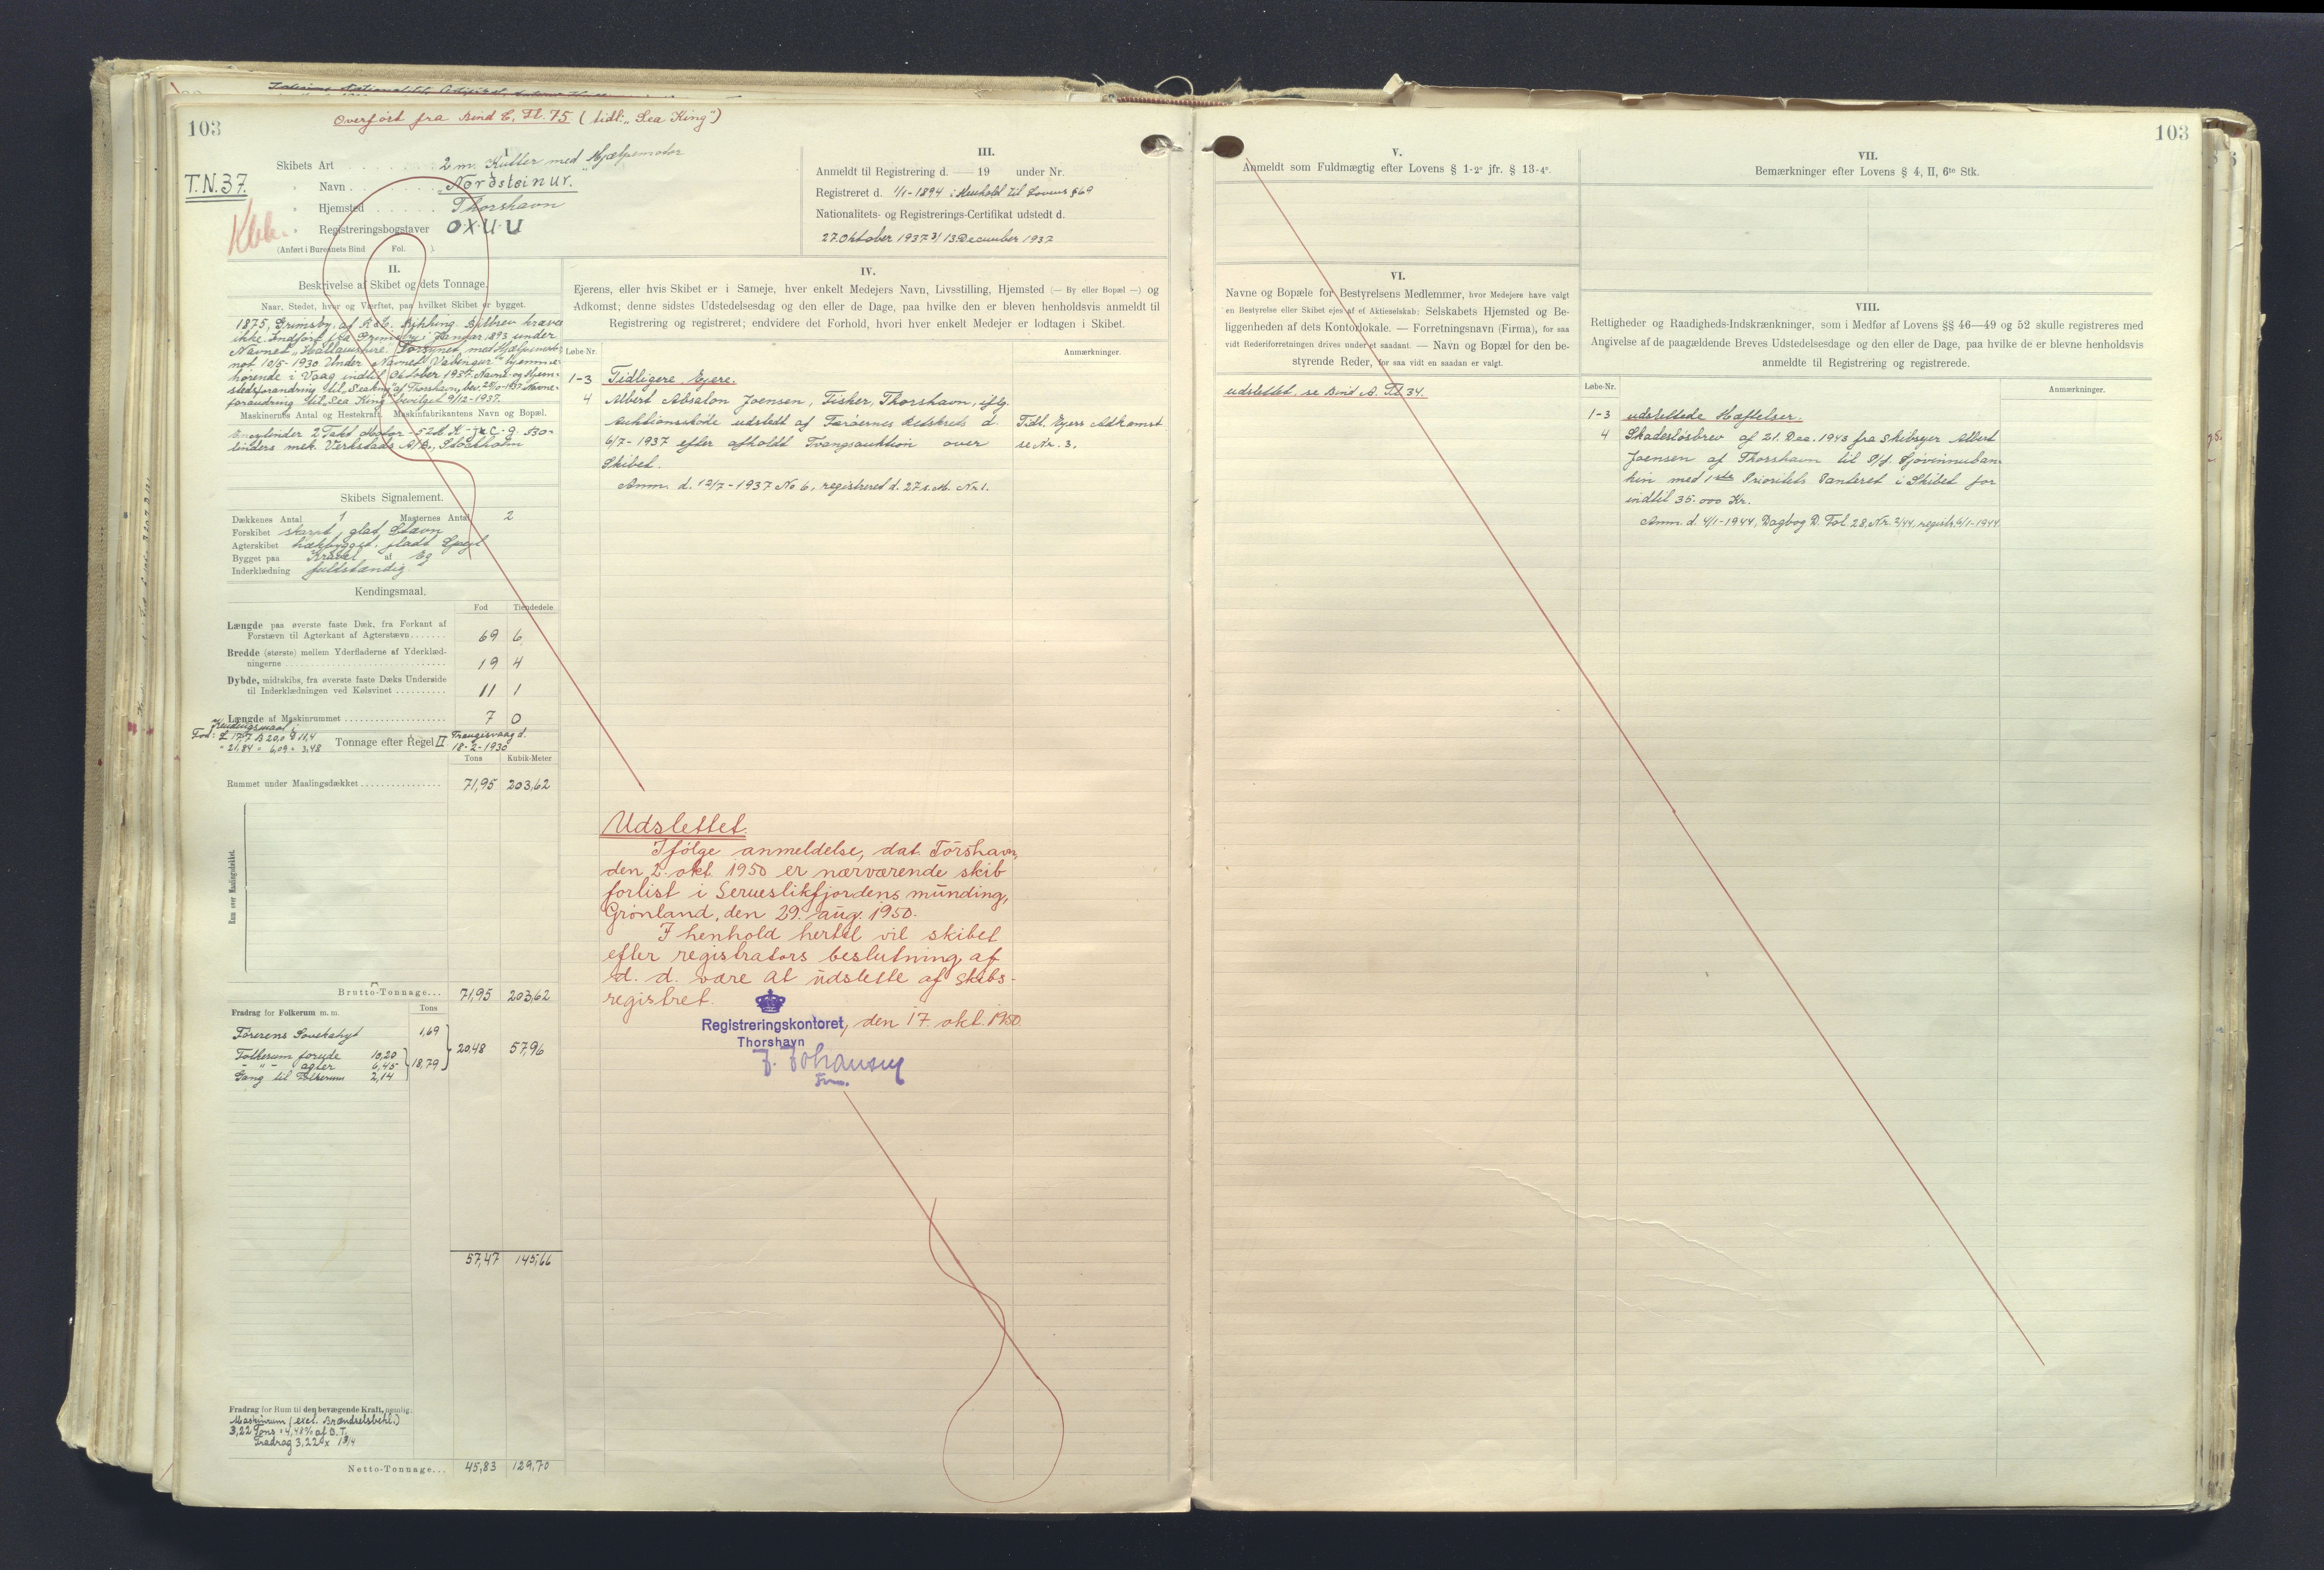 103
Overført fra Bind C, Fl. 75 (tidl. „Sea King")
I.
Skibets Art 2 m. Kutter med Hjælpemotor
T.N.37.
" Navn „Nordsteinur."
" Hjemsted Thorshavn
" Registreringsbogstaver OXUU
(Anført i Bureauets Bind Fol. ).
III.
Anmeldt til Registrering d. — 19 under Nr.
Registreret d. 1/1-1894 i Henhold til Lovens § 69
Nationalitets- og Registrerings-Certifikat udstedt d.
27. Oktober 1937 3/ 13 December 1937
II.
Beskrivelse af Skibet og dets Tonnage.
Naar, Stedet, hvor og Værftet, paa hvilket Skibet er bygget.
1875, Grimsby, af
ikke. Indført fra Grimsby i Januar 1893 under
Navnet Forsynet med Hjælpemotor
not 10/5-1930 Under Navnet hjemme-
hørende i Vaag indtil Oktober 1937. Navne og Hjem-
stedsforandring til „Seaking" af Thorshavn, bev. Navne-
forandring til „Sea King" bevilget 9/12-1937.
Maskinernes Antal og Hestekraft. Maskinfabrikantens Navn og Bopæl.
Encylinder 2 Takt Motor - 52 H.K
linders mek. Verkstads A/B, Stockholm
Skibets Signalement.
Dækkenes Antal 1 Masternes Antal 2
Forskibet skarpt, glat Stævn
Agterskibet hækbygget, fladt Spejl
Bygget paa Kravel af Eg
Inderklædning fuldstændig.
Kendingsmaal.
Fod Tiendedele
Længde paa øverste faste Dæk, fra Forkant af
Forstævn til Agterkant af Agterstævn 69 6
Bredde (største) mellem Yderfladerne af Yderklæd-
ningerne 19 4
Dybde, midtskibs, fra øverste faste Dæks Underside
til Inderklædningen ved Kølsvinet 11 1
Længde af Maskinrummet 7 0
Kendingsmaal i
Fod: B 20,0 11,4
" 21,84 " 6,09 " 3,48
Tonnage efter Regel II Trangisvaag d. 18-2-1930
Tons Kubik-Meter
Rummet under Maalingsdækket 71,95 203,62
Rum over Maalingsdækket.
Brutto-Tonnage... 71,95 203,62
Fradrag for Folkerum m. m. Tons
Førerens Sovekahyt 1,69
Folkerum forude 10,20
- " - agter 6,45
Gang til Folkerum 2,14
18,79
20,48 57,96
57,47 145,66
Fradrag for Rum til den bevægende Kraft, nemlig
Maskinrum (excl. Brændselsbeh.)
3,22 Tons = 4,48% af B.T.
Fradrag 3,22 x 1 3/4
Netto-Tonnage... 45,83 129,70
IV.
Ejerens, eller hvis Skibet er i Sameje, hver enkelt Medejers Navn, Livsstilling, Hjemsted (— By eller Bopæl —) og
Adkomst; denne sidstes Udstedelsesdag og den eller de Dage, paa hvilke den er bleven henholdsvis anmeldt til
Registrering og registreret; endvidere det Forhold, hvori hver enkelt Medejer er lodtagen i Skibet.
Løbe-Nr. Anmærkninger.
1-3 Tidligere Ejere.
4 Albert Absalon Joensen, Fisker, Thorshavn, iflg.
Auktionsskøde udstedt af Færøernes Retskreds d. Tidl. Ejers Adkomst
6/7-1937 efter afholdt Tvangsauktion over se Nr. 3.
Skibet.
Anm. d. 12/7-1937 No 6, registreret d. 27 s. M. Nr. 1.
Udslettet.
Ifølge anmeldelse, dat. Tórshavn,
den 2. okt. 1950 er nærværende skib
forlist i Serueslikfjordens munding,
Grønland, den 29. aug. 1950.
I henhold hertil vil skibet
efter registrators beslutning af
d. d. være at udslette af skibs-
registret.
Registreringskontoret, den 17. okt. 1950.
Thorshavn
J. Johansen
Fm.
103
V.
Anmeldt som Fuldmægtig efter Lovens § 1-2° jfr. § 13-4°.
VII.
Bemærkninger efter Lovens § 4, II, 6te Stk.
VI.
Navne og Bopæle for Bestyrelsens Medlemmer, hvor Medejere have valgt
en Bestyrelse eller Skibet ejes af et Aktieselskab: Selskabets Hjemsted og Be-
liggenheden af dets Kontorlokale. — Forretningsnavn (Firma), for saa
vidt Rederiforretningen drives under et saadant. — Navn og Bopæl for den be-
styrende Reder, for saa vidt en saadan er valgt.
udslettet, se Bind A. Fl. 34.
VIII.
Rettigheder og Raadigheds-Indskrænkninger, som i Medfør af Lovens §§ 46—49 og 52 skulle registreres med
Angivelse af de paagældende Breves Udstedelsesdage og den eller de Dage, paa hvilke de er blevne henholdsvis
anmeldte til Registrering og registrerede.
Løbe-Nr. Anmærkninger.
1-3 udslettede Hæftelser.
4 Skadesløsbrev af 21. Dec. 1943 fra Skibsejer Albert
Joensen af Thorshavn til P/f. Sjóvinnuban-
kin med 1ste Prioritets Panteret i Skibet for
indtil 35.000 Kr.
Anm. d. 4/1-1944, Dagbog D. Fol. 28, Nr. 2/44, registr. 6/1-1944.